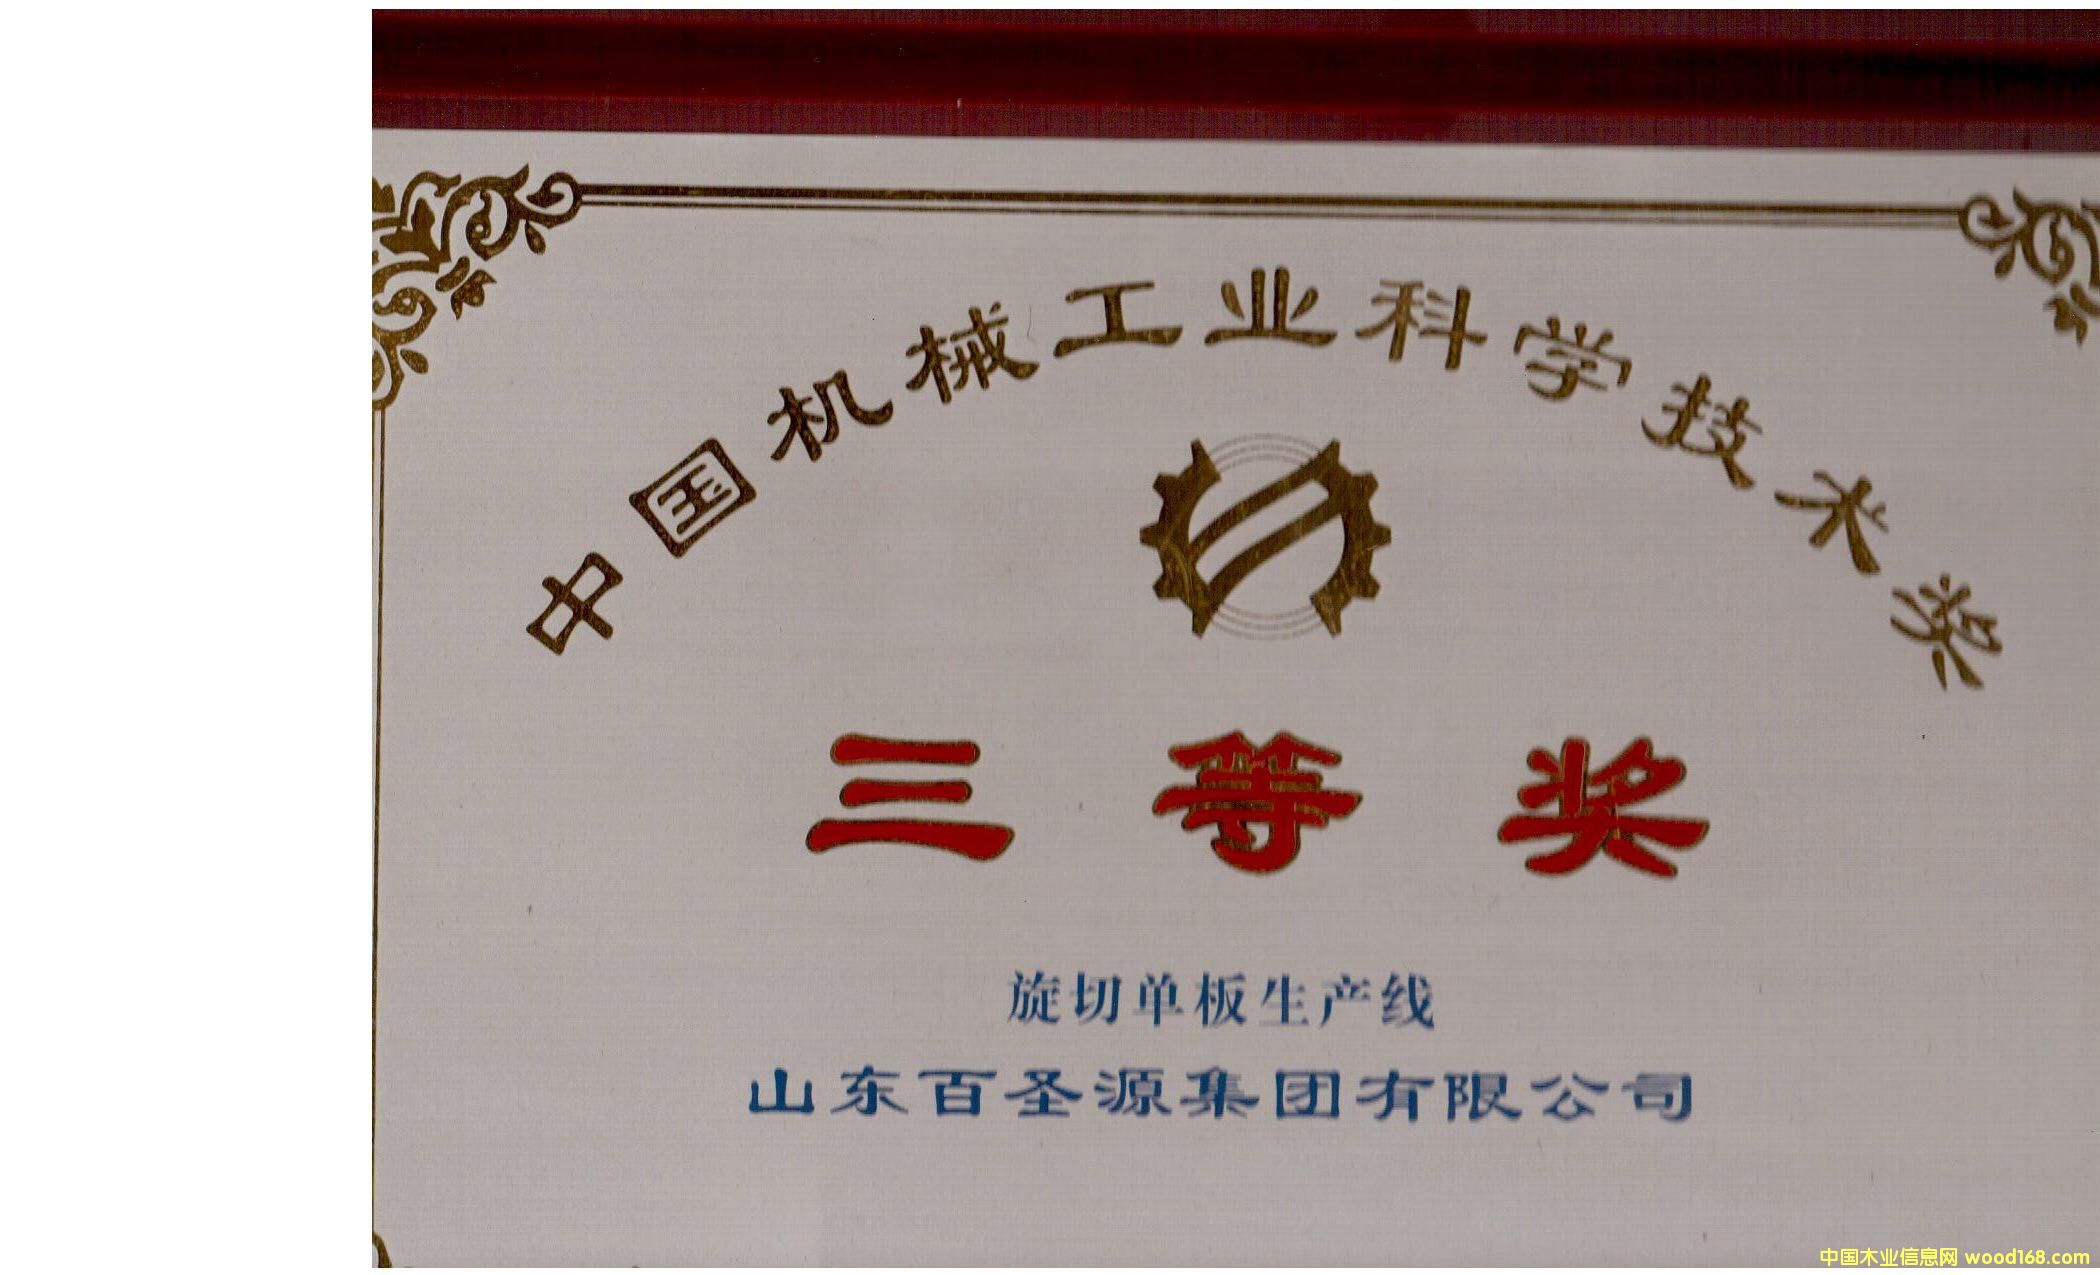 中国机械工业科学技术奖
三等奖
旋切单板生产线
山东百圣源集团有限公司
中国木业信息网 wood168.com